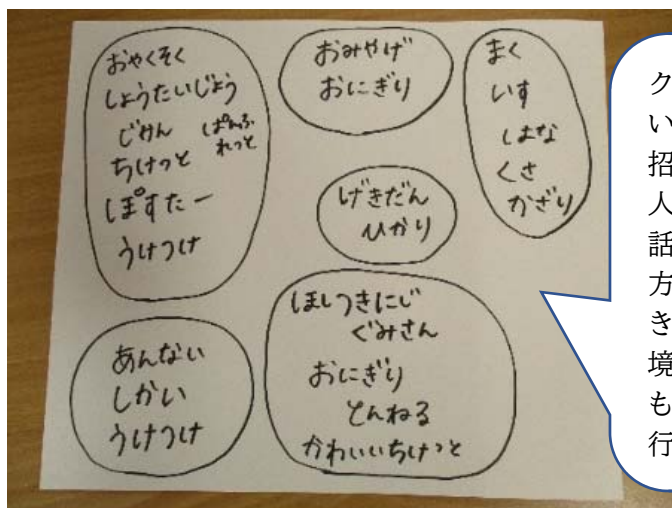 おやくそく
しょうたいじょう
じめん
ぱんふ
れっと
ちけっと
ぽすたー
うけつけ
おみやげ
おにぎり
まく
いす
はな
くさ
かざり
げきだん
ひかり
あんない
しかい
うけつけ
ほしつきにじ
ぐみさん
おにぎり
とんねる
かわいいちけっと
ク
い
招
人
話
方
き
境
も
行